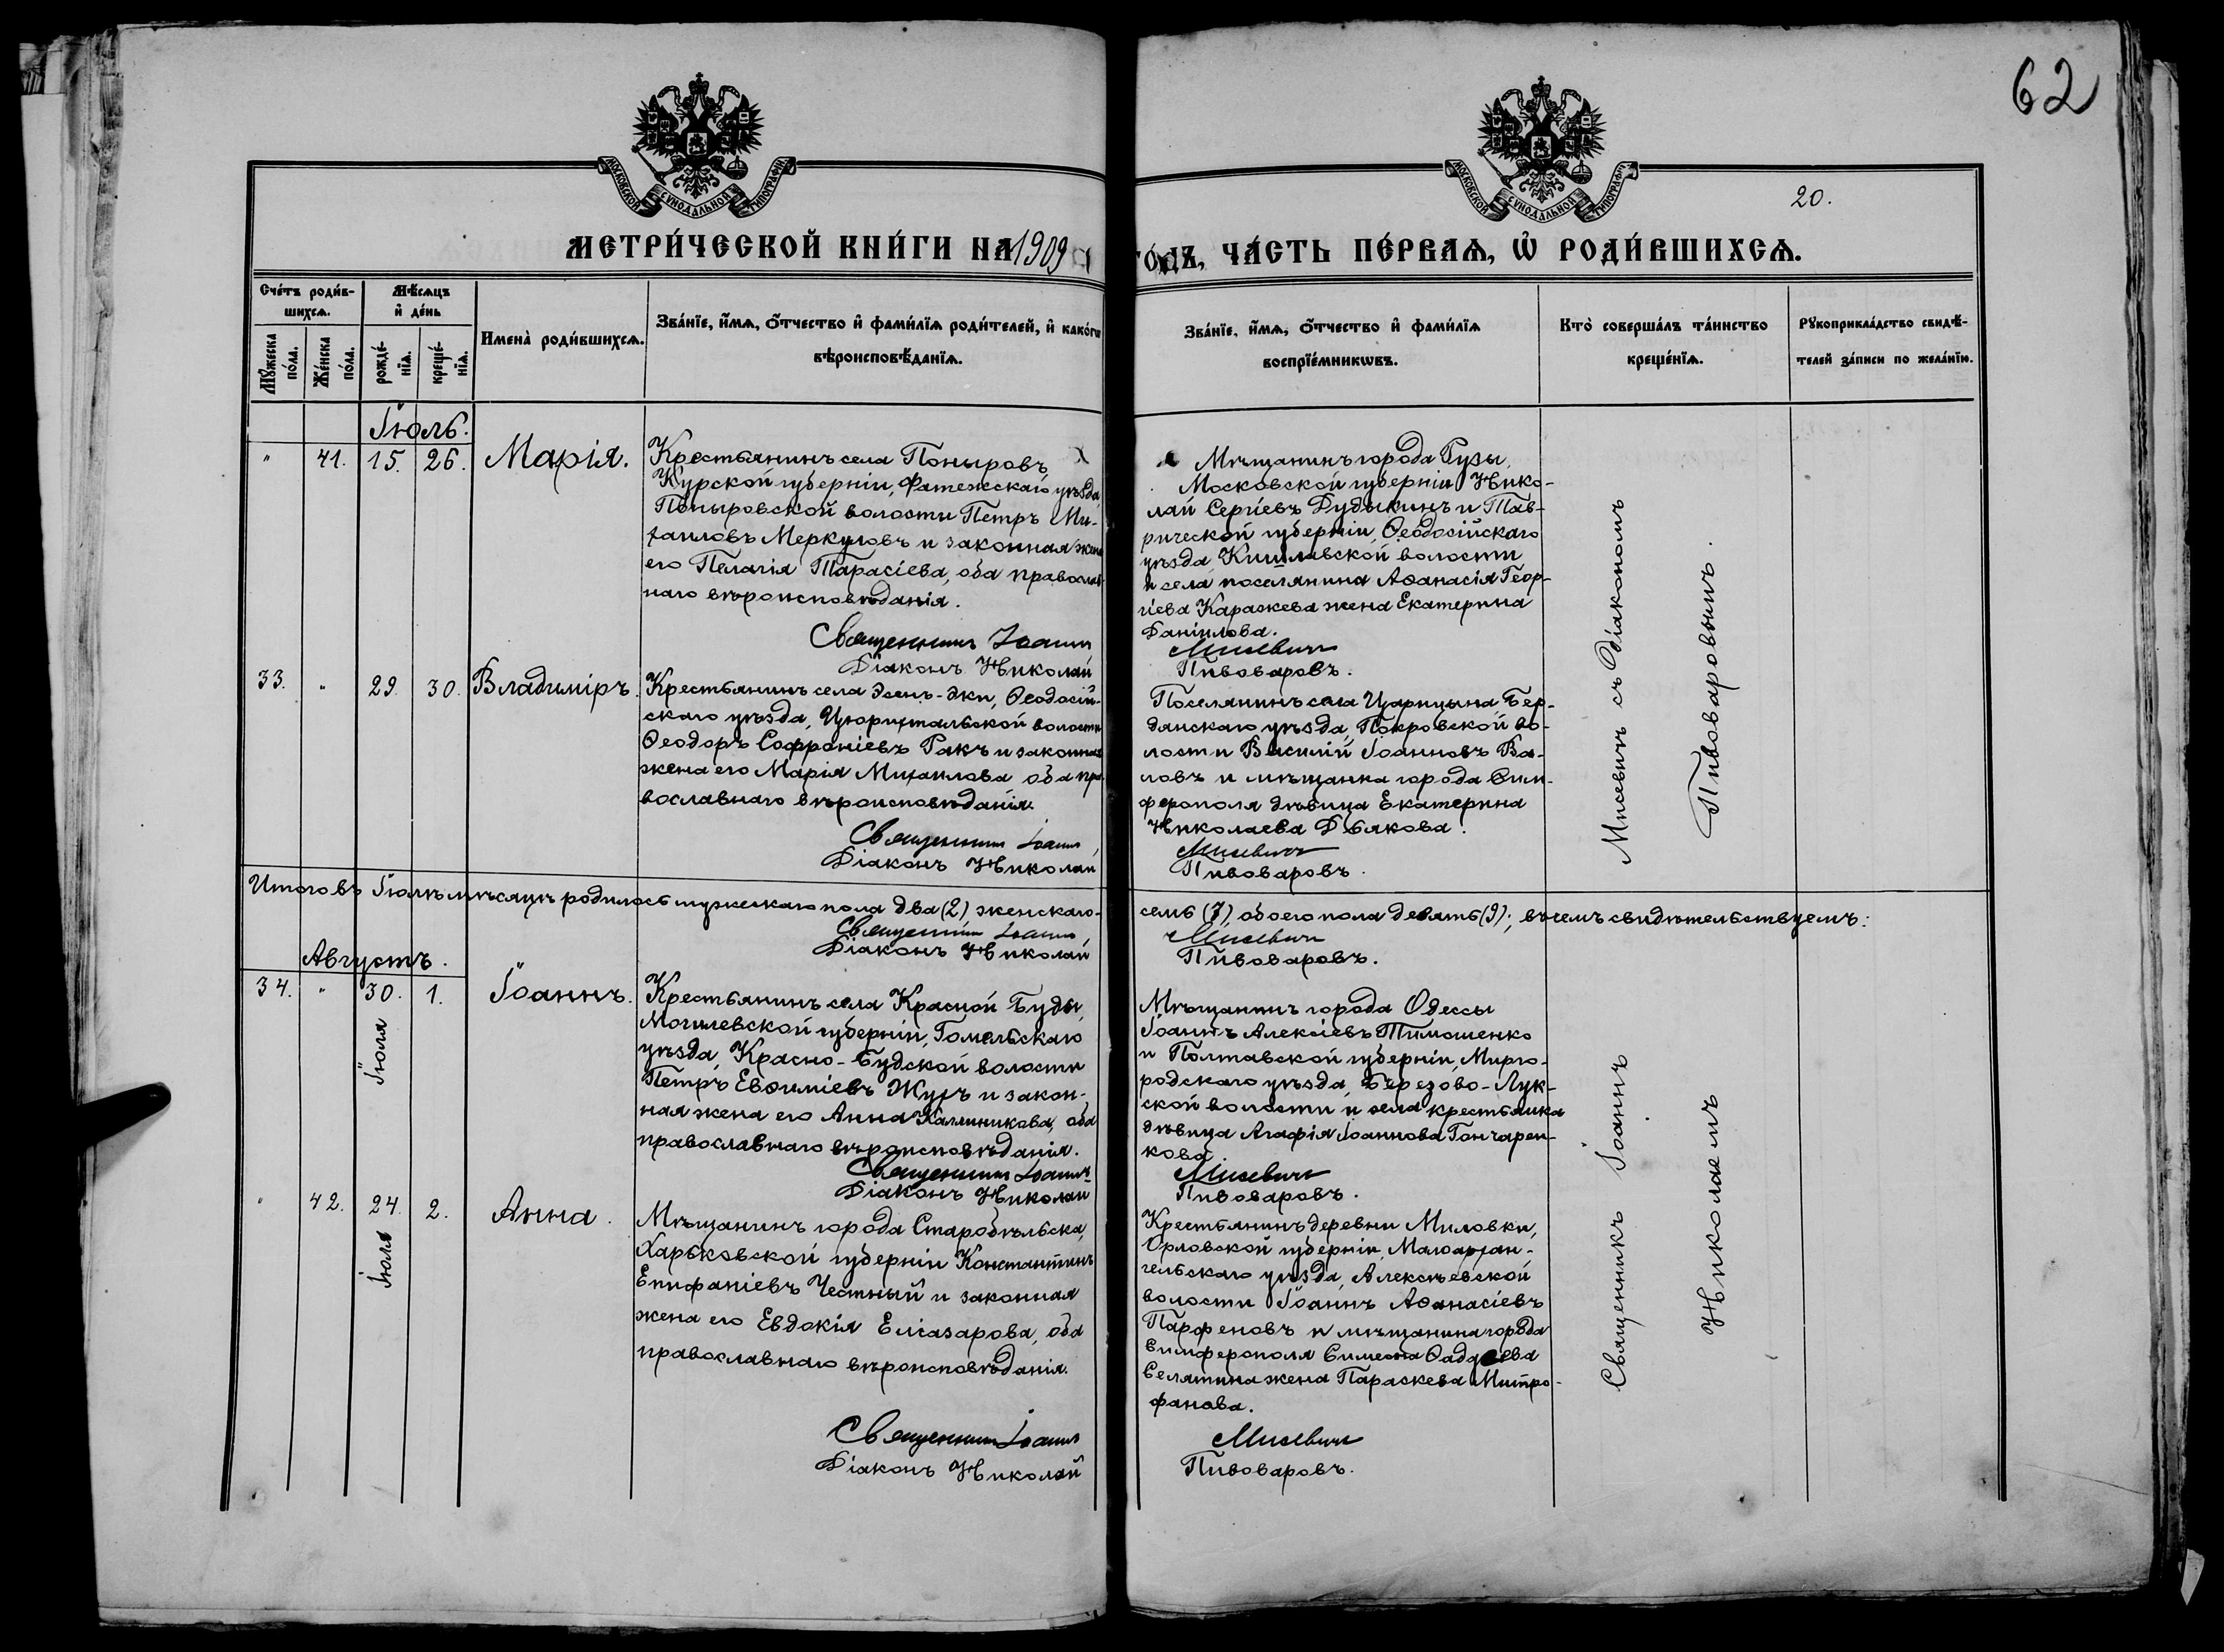 62
МОСКОВСКОЙ СУНОДАЛЬНОЙ ТИПОГРАФІИ
МОСКОВСКОЙ СУНОДАЛЬНОЙ ТИПОГРАФІИ
20.
МЕТРИ́ЧЕСКОЙ КНИ́ГИ НА 1909
ГО́ДЪ, ЧА́СТЬ ПЕ́РВАѦ, Ѡ РОДИ́ВШИХСѦ.
Сче́тъ роди́в-
шихсѧ.
Мѣ́сѧцъ
и҆ де́нь
Мꙋ́жеска
по́ла.
Же́нска
по́ла.
рожде́-
нїѧ.
креще́-
нїѧ.
Имена̀ роди́вшихсѧ.
Зва́нїе, и҆́мѧ, ѻ҆́тчество и҆ фами́лїѧ роди́телей, и҆ како́гѡ
вѣроисповѣ́данїѧ.
Зва́нїе, и҆́мѧ, ѻ҆́тчество и҆ фами́лїѧ
воспрїе́мникѡвъ.
Кто̀ соверша́лъ та́инство
креще́нїѧ.
Рꙋкоприкла́дство свидѣ́-
телей за́писи по жела́нїю.
Іюль.
" 41. 15. 26. Марія.
Крестьянинъ села Поныровъ,
Курской губерніи, Фатежскаго уѣзда,
Поныровской волости Петръ Ми-
хаиловъ Меркуловъ и законная жена
его Пелагія Тарасіева, оба православ-
наго вѣроисповѣданія.
Священникъ Іоаннъ
Діаконъ Николай
Мѣщанинъ города Рузы,
Московской губерніи Нико-
лай Сергіевъ Дудыкинъ и Тав-
рической губерніи, Ѳеодосійскаго
уѣзда, Кишлавской волости
и села поселянина Аѳанасія Геор-
гіева Каражева жена Екатерина
Даніилова.
Мисевичъ
Пивоваровъ.
33. " 29. 30. Владиміръ.
Крестьянинъ села Эсенъ-Эки, Ѳеодосій-
скаго уѣзда, Цюрихтальской волости
Ѳеодоръ Софроніевъ Ракъ и законная
жена его Марія Михаилова, оба пра-
вославнаго вѣроисповѣданія.
Священникъ Іоаннъ
Діаконъ Николай
Поселянинъ села Царицына, Бер-
данскаго уѣзда, Покровской во-
лости Василій Іоанновъ Ва-
ловъ и мѣщанка города Сим-
ферополя дѣвица Екатерина
Николаева Дьякова.
Мисевичъ
Пивоваровъ.
Мисевичъ съ діакономъ
Пивоваровымъ.
Итого въ Іюлѣ мѣсяцѣ родилось мужескаго пола два (2) женскаго-
семь (7) обоего пола девять (9); въ чемъ свидѣтельствуемъ:
Священникъ Іоаннъ
Діаконъ Николай
Мисевичъ
Пивоваровъ.
Августъ.
34. " 30. 1. Іоаннъ.
Іюля
Крестьянинъ села Красной Буды,
Могилевской губерніи, Гомельскаго
уѣзда, Красно-Будской волости
Петръ Евѳиміевъ Жукъ и закон-
ная жена его Анна Каллиникова, оба
православнаго вѣроисповѣданія.
Священникъ Іоаннъ
Діаконъ Николай
Мѣщанинъ города Одессы
Іоаннъ Алексіевъ Тимошенко
и Полтавской губерніи, Мирго-
родскаго уѣзда, Березово-Лук-
ской волости и села крестьянка
дѣвица Агафія Іоаннова Гончарен-
кова
Мисевичъ
Пивоваровъ.
" 42. 24. 2. Анна.
Іюля
Мѣщанинъ города Старобѣльска,
Харьковской губерніи Константинъ
Епифаніевъ Честный и законная
жена его Евдокія Еліазарова, оба
православнаго вѣроисповѣданія.
Священникъ Іоаннъ
Діаконъ Николай
Крестьянинъ деревни Миловки,
Орловской губерніи, Малоархан-
гельскаго уѣзда, Алексѣевской
волости Іоаннъ Аѳанасіевъ
Парфеновъ и мѣщанина города
Симферополя Симеона Ѳаддеева
Селятина жена Параскева Митро-
фанова.
Мисевичъ
Пивоваровъ.
Священникъ Іоаннъ
Николаемъ